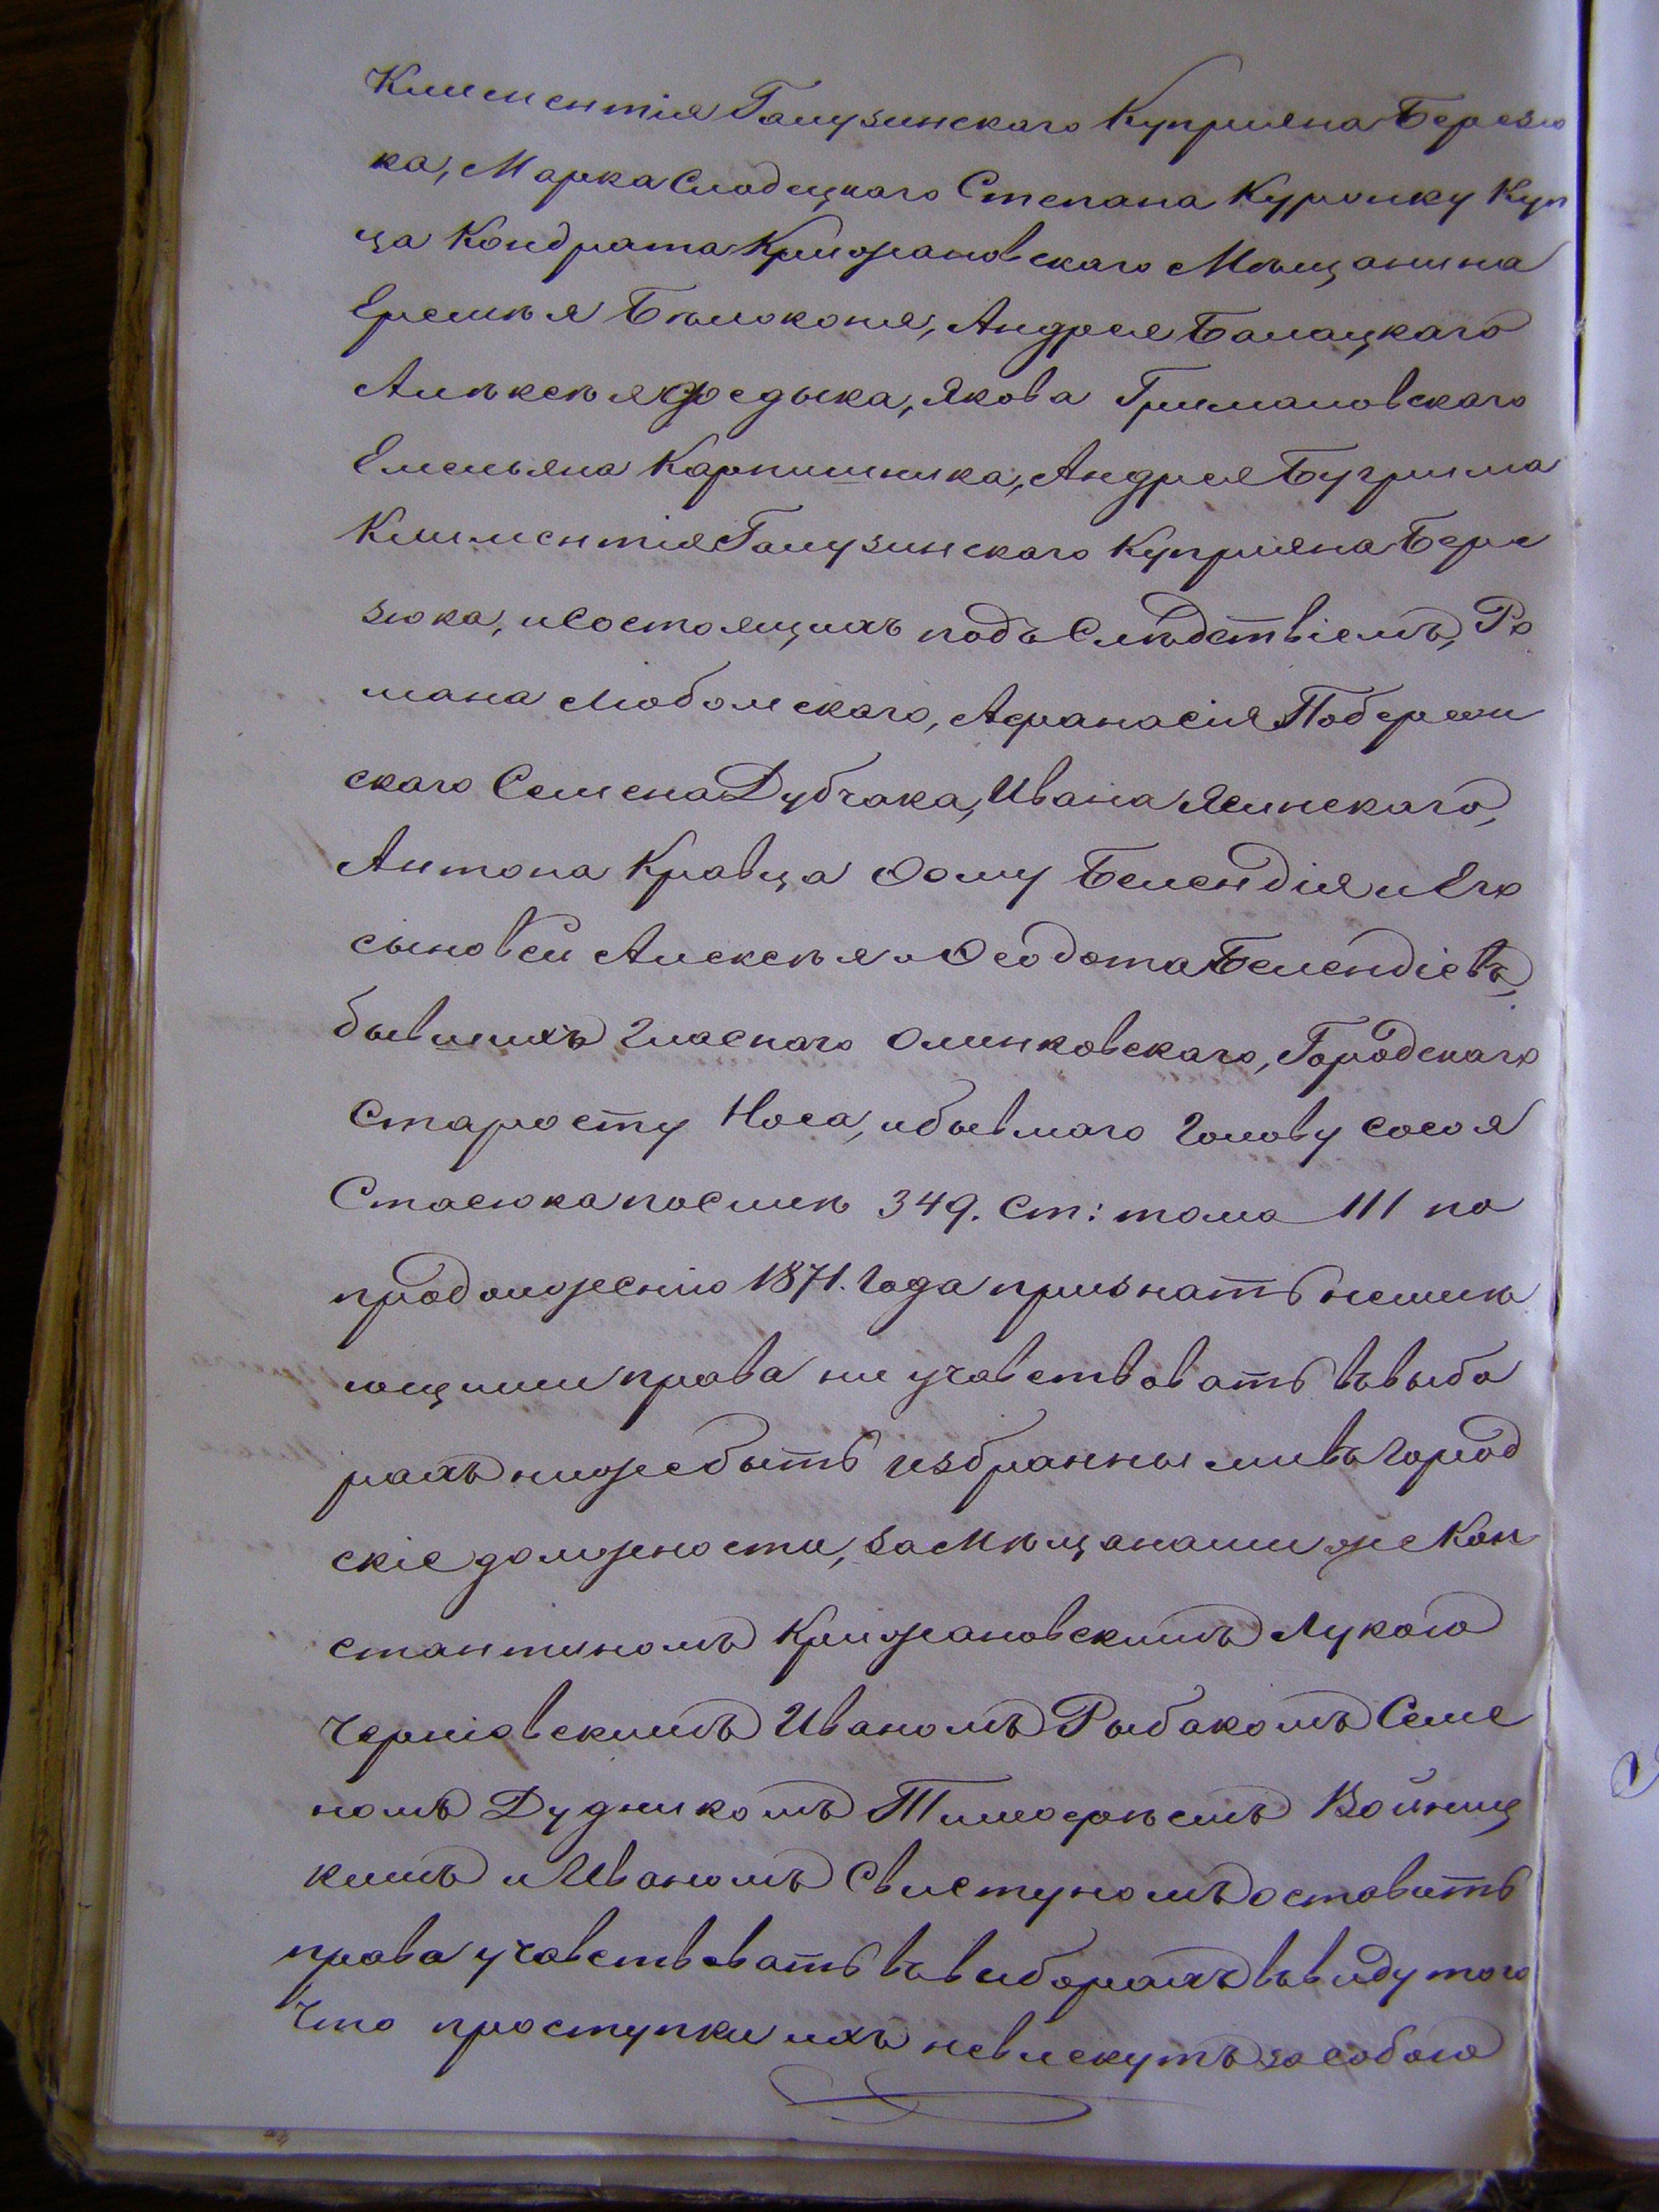 Климентія Галузинскаго Куприяна Березю
ка, Марка Слободецкаго Степана Курочку Куп
ца Кондрата Крижановскаго Мѣщанина
Еремѣя Бѣлоконя, Андрея Балацкаго
Алѣксѣя Федыка, Якова Грималовскаго
Емельяна Карпишника, Андрея Бугрима
Климентія Галузинскаго Куприяна Бере
зюка, и Состоящихъ подъ Слѣдствіемъ, Ро
мана Любомскаго, Афанасия Побереж
скаго Семена Дубчака, Ивана Ясинскаго,
Антона Кравца Ѳому Белендия и Его
сыновей Алексѣя и Ѳеодота Белендіевъ,
бывшихъ Гласнаго Олинковскаго, Городскаго
Старосту Носа, и бывшаго Голову Сосоя
Стасюка по Силѣ 349. Ст: тома III по
продолженію 1871. Года признать неимѣ
ющими права ни учавствовать въ выбо
рахъ ниже быть избранными въ Город
скіе должности, за Мѣщанами же Кон
стантиномъ Крижановскимъ Лукою
Черніовскимъ Иваномъ Рыбакомъ Семе
номъ Дудникомъ Тимофѣемъ Войниц
кимъ и Иваномъ Свистуномъ оставить
права учавствовать въ выборахъ въ виду того
Что проступки ихъ невлекутъ за собою